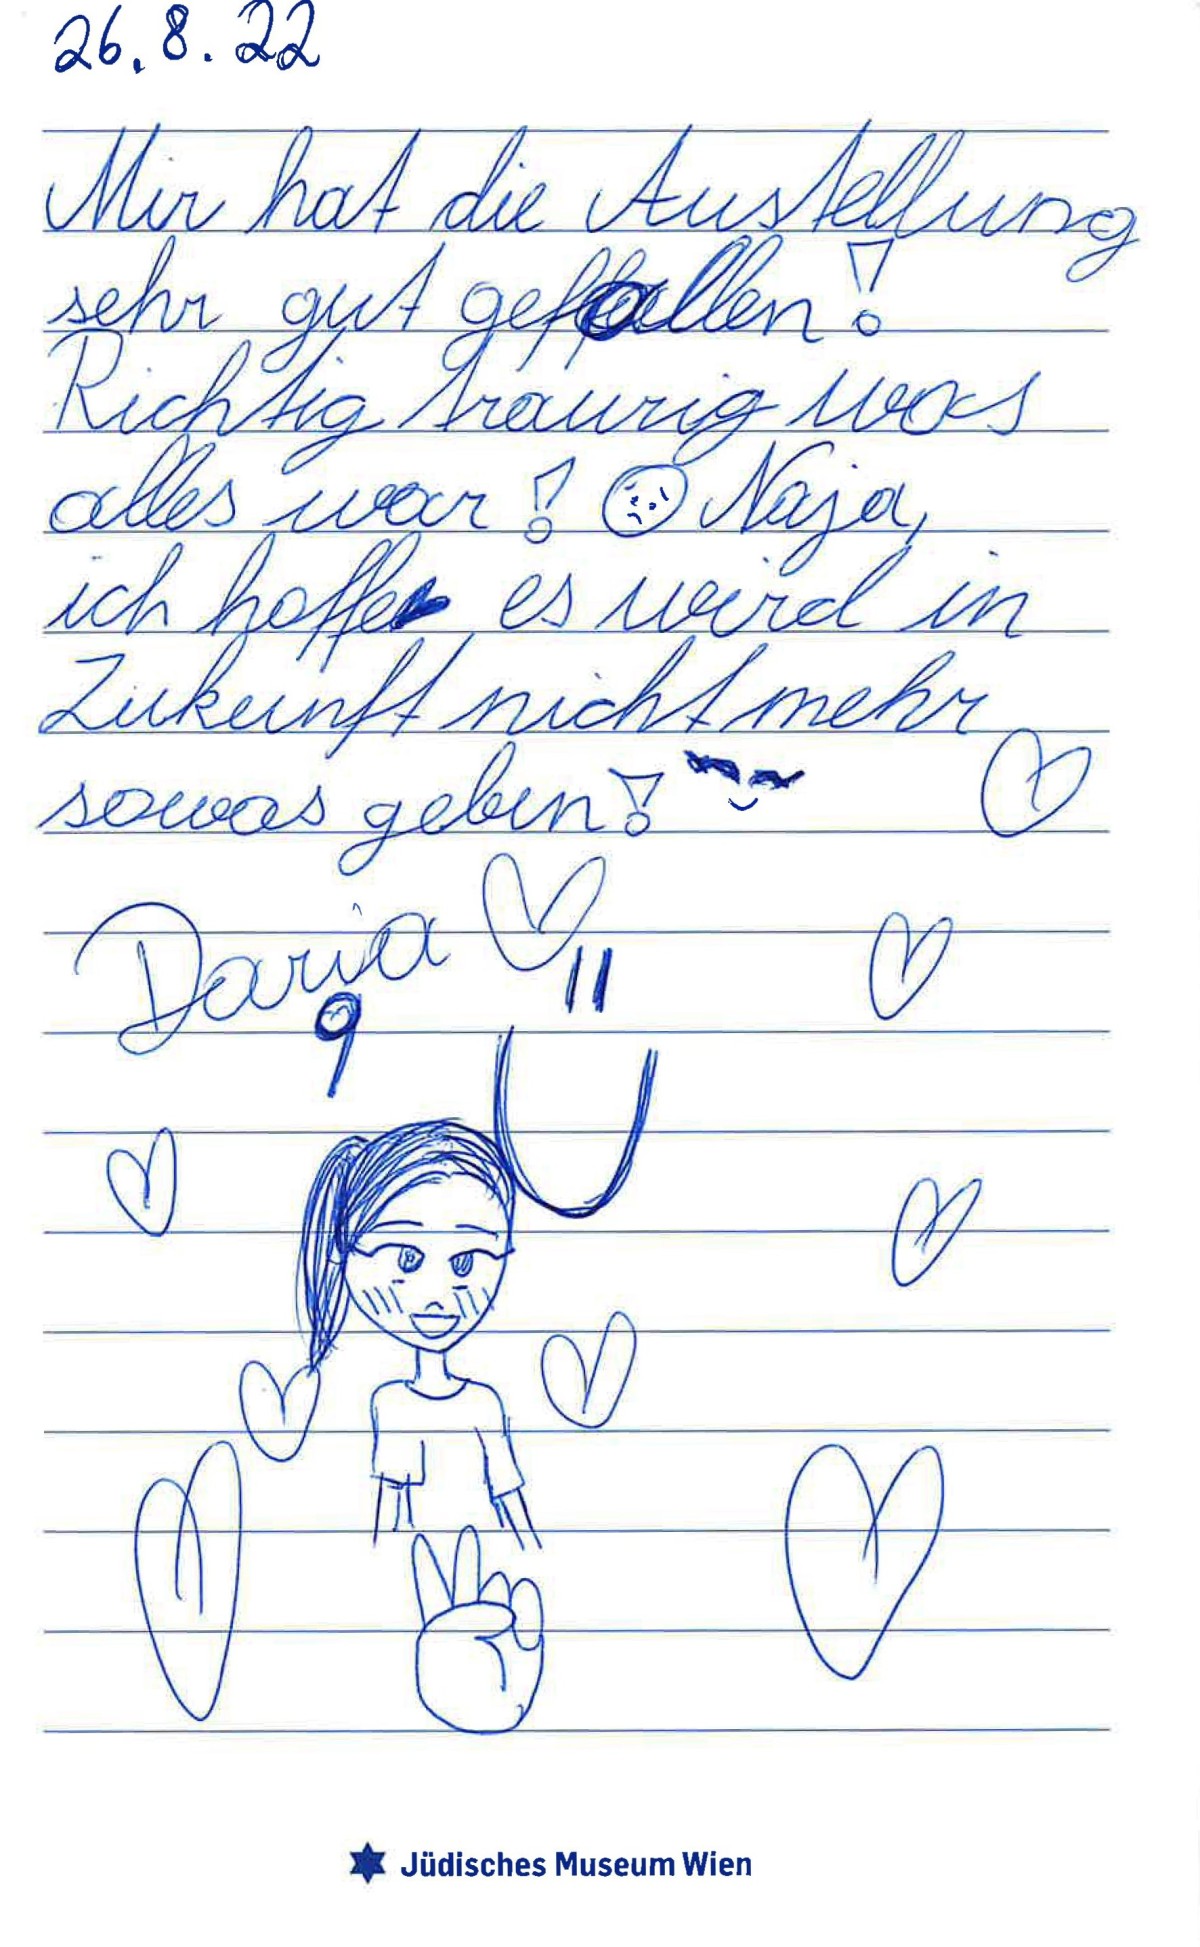 26.8.22
Mir hat die Austellung
sehr gut gefallen!
Richtig traurig was
alles war! Naja,
ich hoffe es wird in
Zukunft nicht mehr
sowas geben!
Daria
Jüdisches Museum Wien